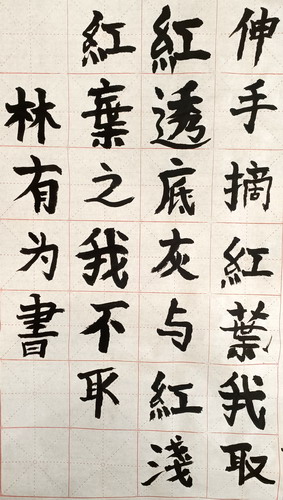 伸手摘紅葉我取
紅透底灰与紅淺
紅棄之我不取
林有为書